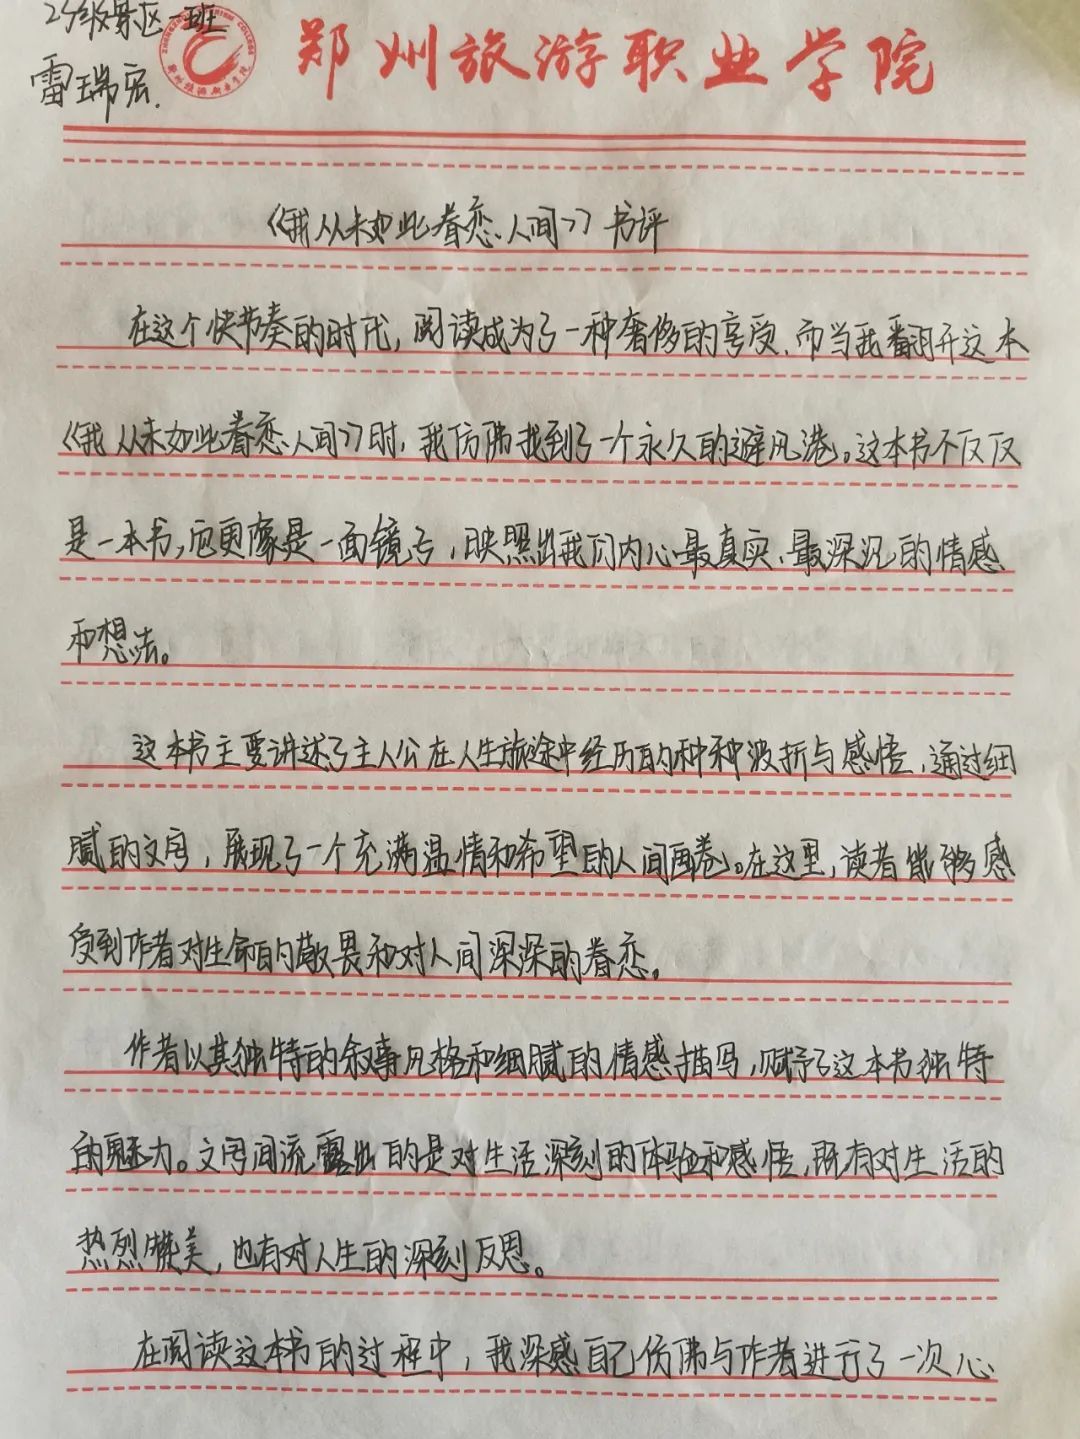 24级景区一班
雷瑞宏.
郑州旅游职业学院
《我从未如此眷恋人间》书评
在这个快节奏的时代,阅读成为了一种奢侈的享受.而当我翻开这本
《我从未如此眷恋人间》时,我仿佛找到了一个永久的避风港。这本书不仅仅
是一本书,而更像是一面镜子,映照出我们内心最真实、最深沉的情感
和想法。
这本书主要讲述了主人公在人生旅途中经历的种种波折与感悟,通过细
腻的文字,展现了一个充满温情和希望的人间画卷。在这里,读者能够感
受到作者对生命的敬畏和对人间深深的眷恋。
作者以其独特的叙事风格和细腻的情感描写,赋予了这本书独特
的魅力。文字间流露出的是对生活深刻的体验和感悟,既有对生活的
热烈赞美,也有对人生的深刻反思。
在阅读这本书的过程中,我深感自己仿佛与作者进行了一次心